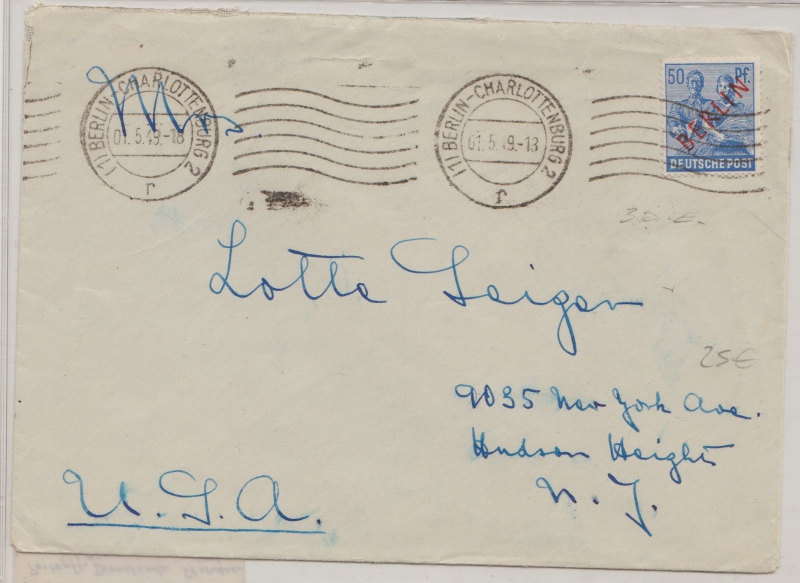 (1) BERLIN-CHARLOTTENBURG 2
01.5.49.-18
r
(1) BERLIN-CHARLOTTENBURG 2
01.5.49.-18
r
50 Pf.
BERLIN
DEUTSCHE POST
Mrs.
Lotte Geiger
9035 New York Ave.
Hudson Heights
N. J.
U.S.A.
25€